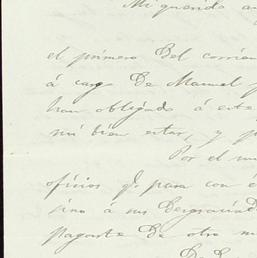 Mi querido
el primero del corrien
á cargo de Manuel
han obligado á este
mi bien estar, y p
Por el mu
oficios q. para con é
sino á sus desgraciad
pagarte de otro m